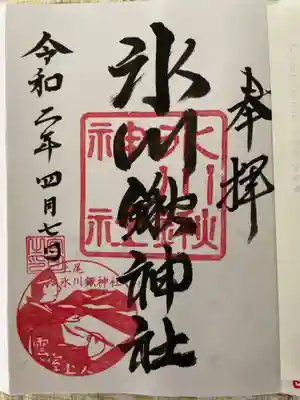 奉拝
氷川鍬神社
令和二年四月七日
氷川鍬
神社
上尾
氷川鍬神社
雲室上人